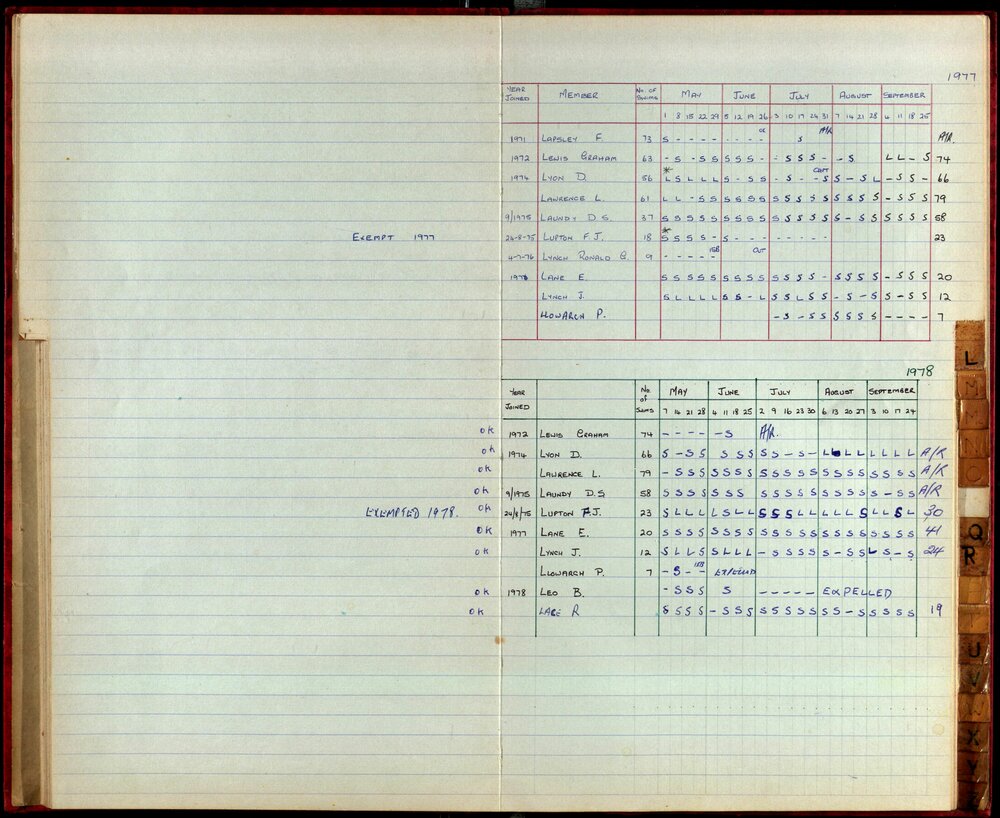 1977
YEAR JOINED MEMBER No. OF SWIMS MAY JUNE JULY AUGUST SEPTEMBER
1 8 15 22 29 5 12 19 26 3 10 17 24 31 7 14 21 28 4 11 18 25
1971 LAPSLEY F. 73 S - - - - - - - - S A/R A/R.
1972 LEWIS GRAHAM 63 - S - S S S S S - - S S S - - S L L - S 74
1974 LYON D. 56 * L S L L L S - S S - S - - S S - S L - S S - 66
LAWRENCE L. 61 L L - S S S S S S S S S S S S S S S - S S S 79
9/1975 LAUNDY D.S. 37 S S S S S S S S S S S S S S S - S S S S S S 58
EXEMPT 1977 24-8-75 LUPTON F.J. 18 * S S S S - S - - - - - - - - 23
4-7-76 LYNCH RONALD G. 9 - - - - - 15B OUT
1976 LANE E. S S S S S S S S S S S S S - S S S S - S S S 20
LYNCH J. S L L L L S S - L S S L S S - S - S S - S S 12
HOWARCH P. - S - S S S S S S - - - - 7
1978
YEAR JOINED No of SWIMS MAY JUNE JULY AUGUST SEPTEMBER
7 14 21 28 4 11 18 25 2 9 16 23 30 6 13 20 27 3 10 17 24
OK 1972 LEWIS GRAHAM 74 - - - - - S A/R.
OK 1974 LYON D. 66 S - S S S S S S S - S - L L L L L L L A/R
OK LAWRENCE L. 79 - S S S S S S S S S S S S S S S S S S S S A/R
OK 9/1975 LAUNDY D.S 58 S S S S S S S S S S S S S S S S S - S S A/R
EXEMPTED 1978. OK 24/8/75 LUPTON F.J. 23 S L L L L S L L S S S L L L L L S L L S L 30
OK 1977 LANE E. 20 S S S S S S S S S S S S S S S S S S S S S 41
OK LYNCH J. 12 S L L S S L L L - S S S S S - S S L S - S 24
LLOWARCH P. 7 - S - - 15B EXPELLED
OK 1978 LEO B. - S S S S - - - - - EXPELLED
OK LABE R S S S S - S S S S S S S S S S - S S S S S 19
L
M
N
O
Q
R
U
V
W
X
Y
Z